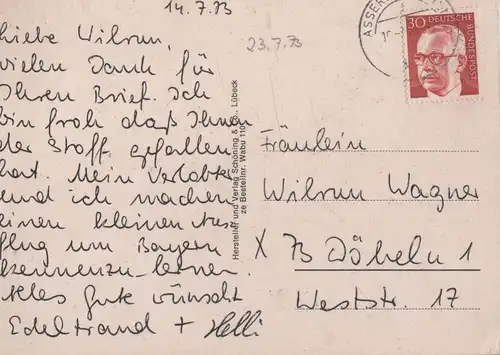 14.7.73
Liebe Wilrun,
vielen Dank für
Ihren Brief. Ich
bin froh daß Ihnen
der Stoff gefallen
hat. Mein Verlobter
und ich machen
einen kleinen Aus
flug um Bayern
kennenzu-lernen.
Alles Gute wünscht
Edeltraud + Helli
23.7.73
Hersteller und Verlag Schöning & Co., Lübeck
ze Bestellnr. Wabu 110
ASSER
30 DEUTSCHE
BUNDESPOST
Fräulein
Wilrun Wagner
X 73 Döbeln 1
Weststr. 17